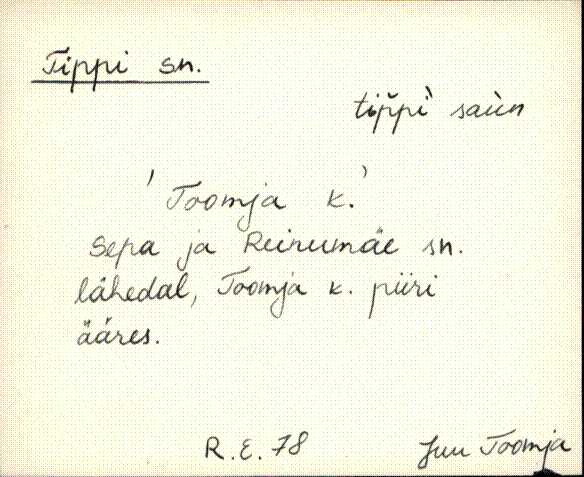 Tippi sn.
tip̆pì saùn
' Toomja k.'
Sepa ja Reinumäe sn.
lähedal, Toomja k. piiri
ääres.
R.E.78 Juu Toomja